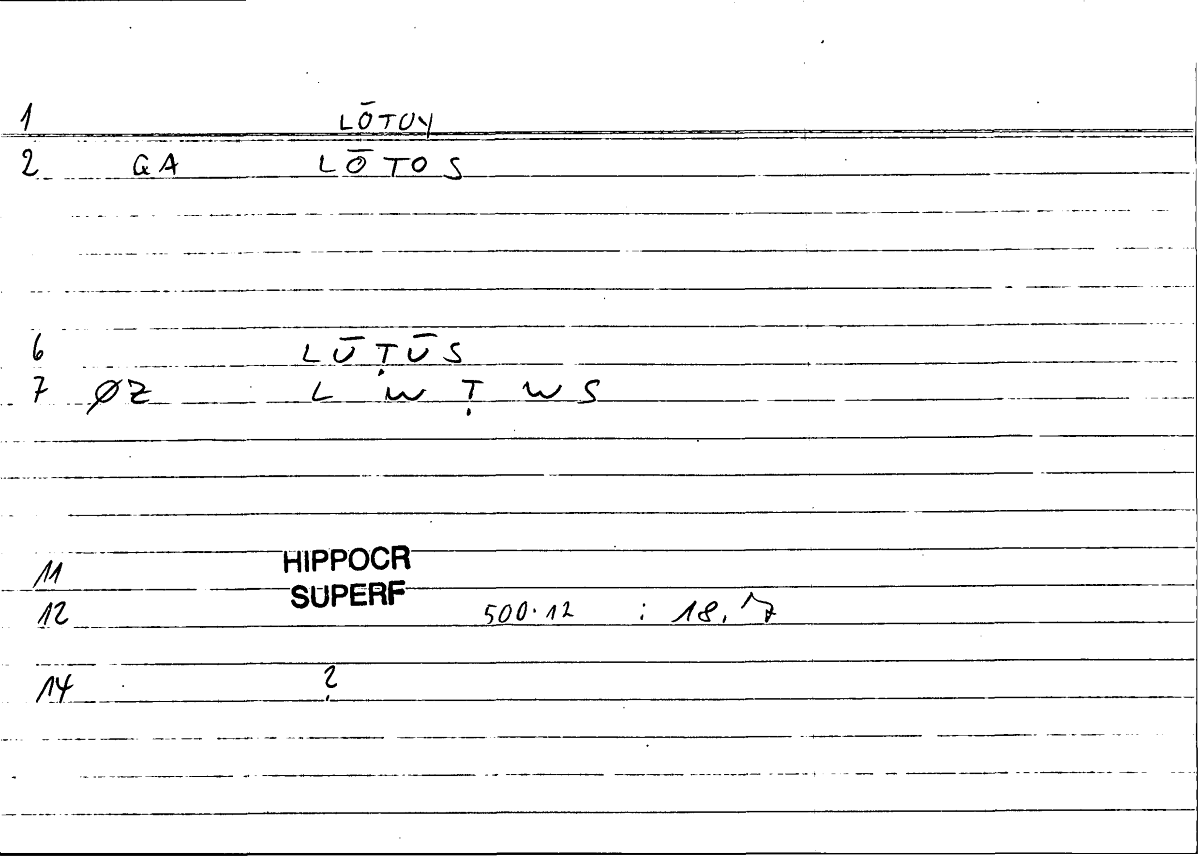 1 LŌTUY
2 GA LŌTOS
6 LŪṬŪS
7 ØZ L W Ṭ W S
11 HIPPOCR
SUPERF
12 500.12 : 18,
14 ?